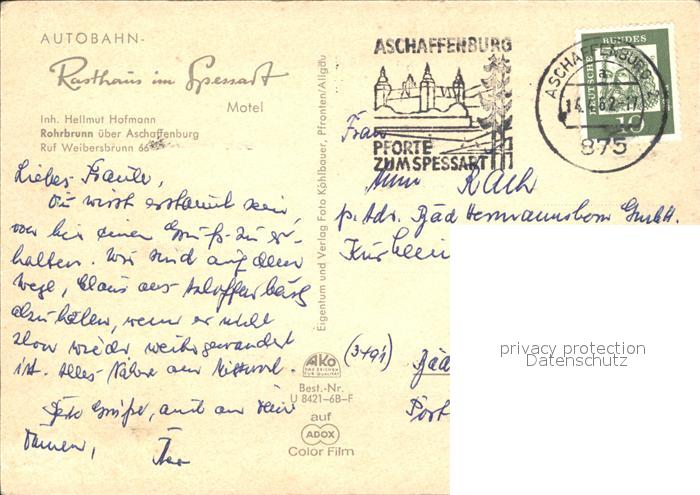 AUTOBAHN-
Rasthaus im Spessart
Motel
Inh. Hellmut Hofmann
Rohrbrunn über Aschaffenburg
Ruf Weibersbrunn 66
Du wirst erstaunt sein,
von hier einen Gruß zu er-
halten. Wir sind auf dem
Wege, Claus aus Aschaffenburg
abzuholen, wenn er nicht
schon wieder weitergewandert
ist. Alles Nähere am Mittwoch.
Gute Grüße, auch an Dein
Eigentum und Verlag Foto Köhlbauer, Pfronten/Allgäu
AKO
DAS ZEICHEN
FÜR QUALITÄT
Best.-Nr.
U 8421-6B-F
auf
ADOX
Color Film
ASCHAFFENBURG
PFORTE
ZUM SPESSART
ASCHAFFENBURG 2
875
DEUTSCHE BUNDES
10
Frau
p. Adr. Bad Hermannsborn GmbH.
(3491) Bad
Post
privacy protection
Datenschutz